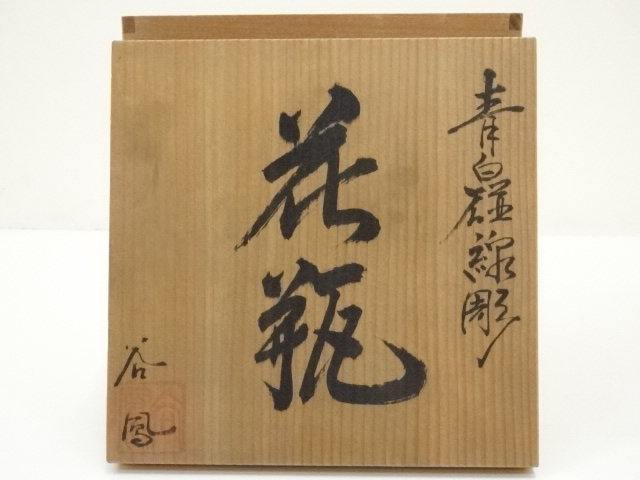 青白磁線彫
花瓶
谷鳳